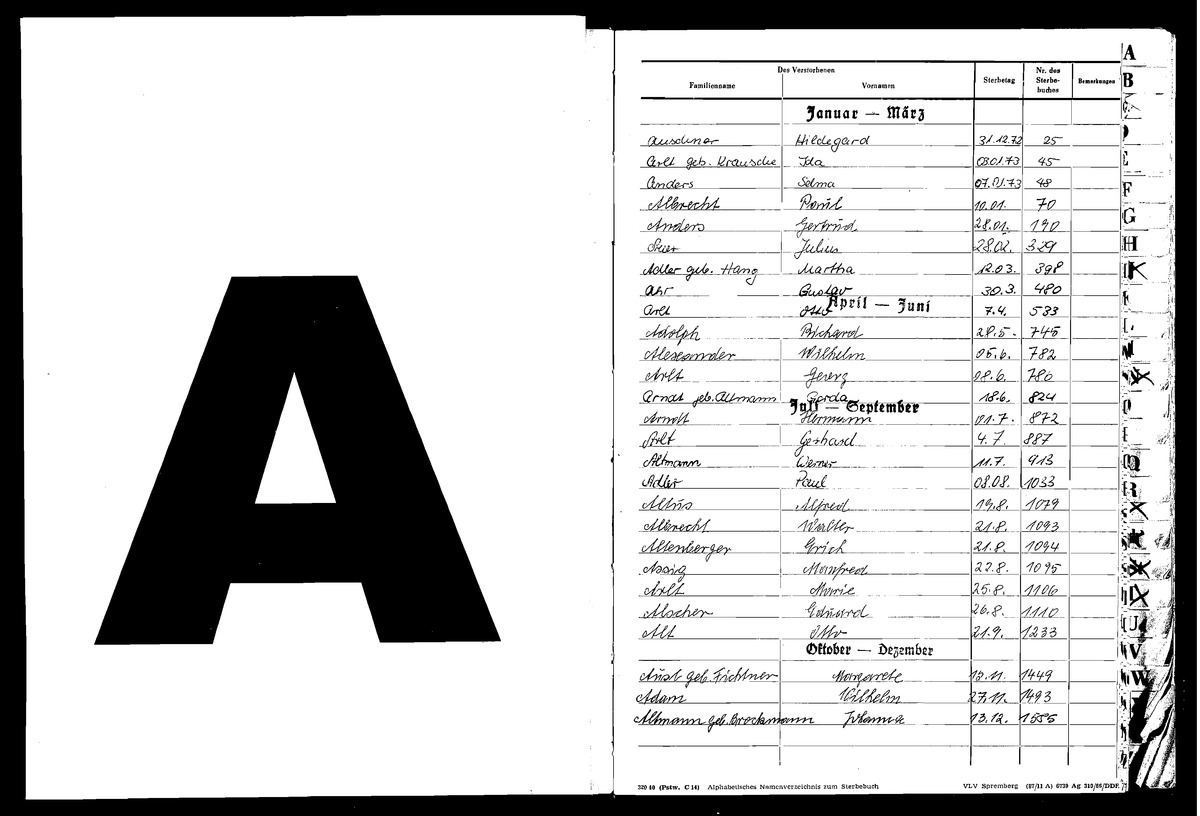 A
Des Verstorbenen
Familienname Vornamen Sterbetag Nr. des Sterbe-buches Bemerkungen
Januar — März
Hildegard 31.12.72 25
Arlt geb. Krausche Ida 03.01.73 45
Anders Selma 07.01.73 48
Albrecht Paul 10.01. 70
Anders Gertrud 28.01. 190
Julius 28.02. 329
Adler geb. Hang Martha 12.03. 398
Ahr Gustav 30.3. 480
April — Juni
Arlt Otto 7.4. 533
Adolph Richard 28.5. 745
Alexander Wilhelm 05.6. 782
Arlt Georg 08.6. 780
Arndt geb. Altmann Gerda 18.6. 824
Juli — September
Arndt Hermann 01.7. 872
Arlt Gerhard 4.7. 887
Altmann Werner 11.7. 913
Adler Paul 08.08. 1033
Altus Alfred 19.8. 1079
Albrecht Walter 21.8. 1093
Altenberger Erich 21.8. 1094
Assig Manfred 22.8. 1095
Arlt Marie 25.8. 1106
Alscher Eduard 26.8. 1110
Alt Otto 21.9. 1233
Oktober — Dezember
Aust geb. Fichtner Margarete 13.11. 1449
Adam Wilhelm 27.11. 1493
Altmann geb. Brockmann Johanna 13.12.
320 40 (Pstw. C 14) Alphabetisches Namenverzeichnis zum Sterbebuch VLV Spremberg (87/11 A) 6739 Ag 310/86/DDR
A
B
E
F
G
H
K
L
M
O
Q
R
U
V
W